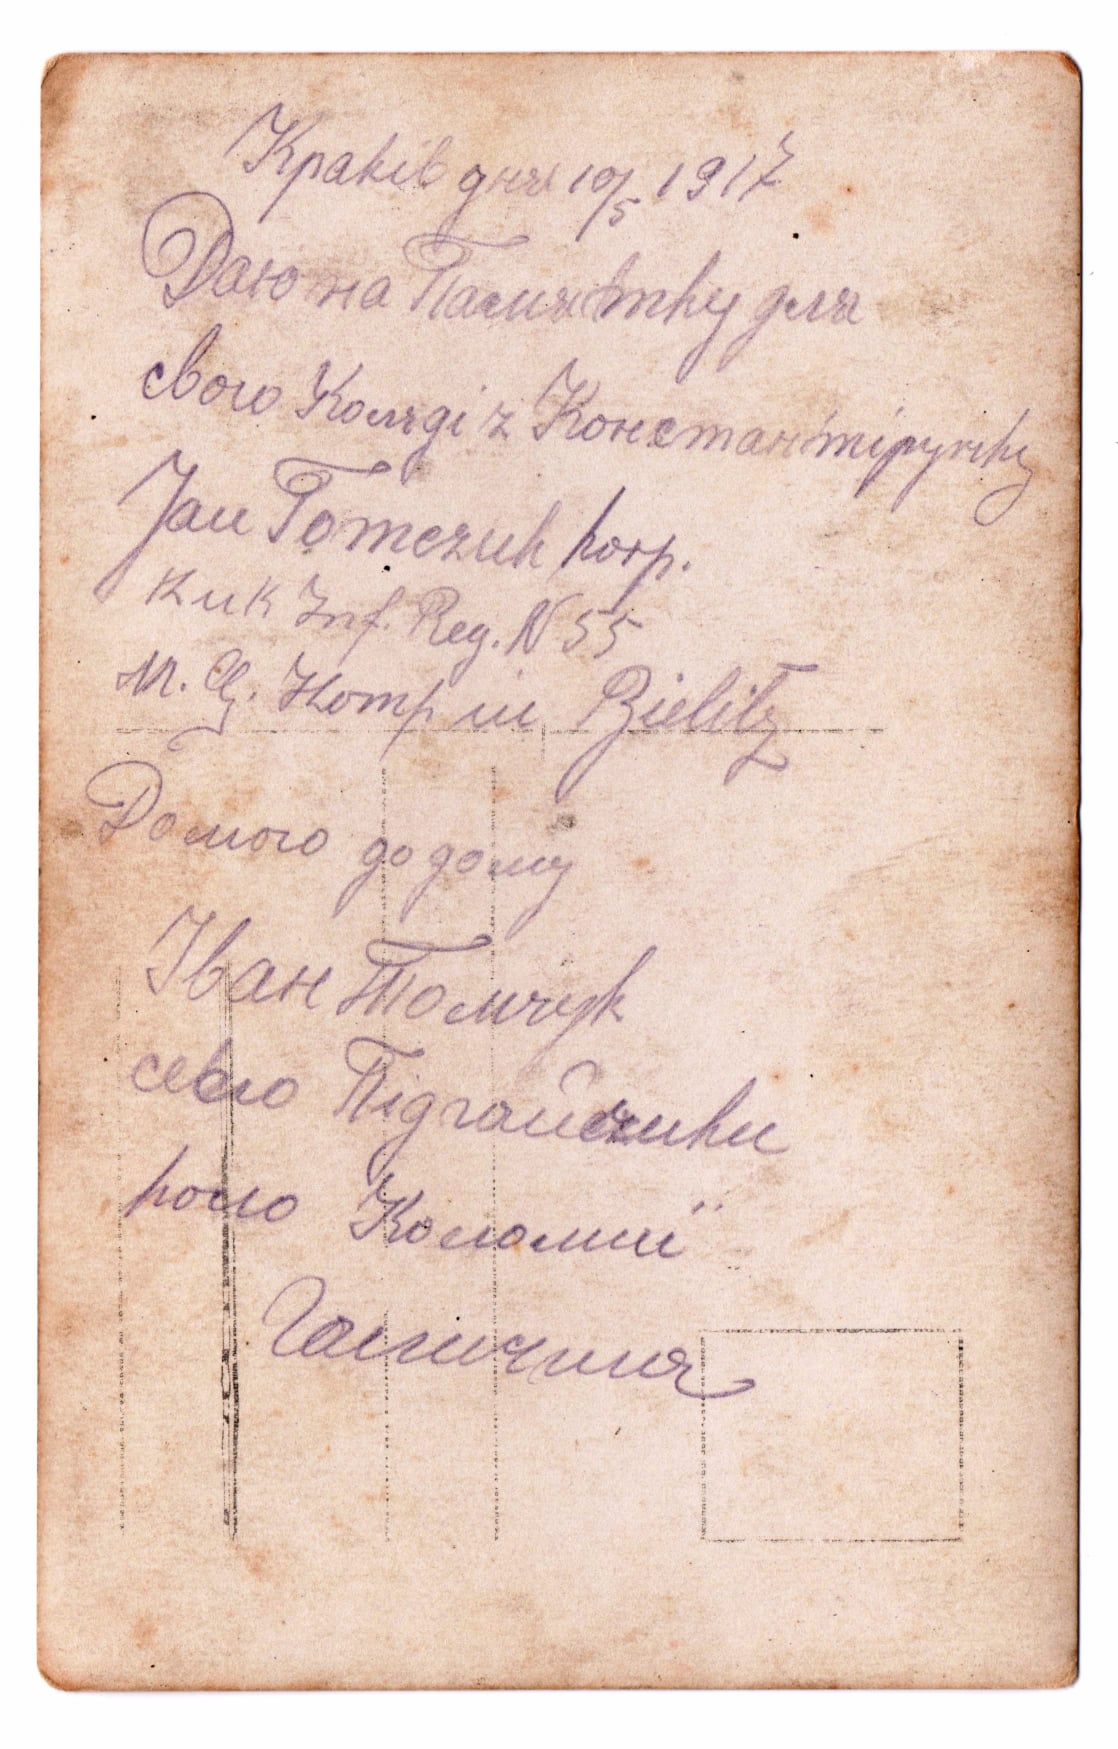 Краків дня 10/5 1917
Даю на Памятку для
свого Колєді з
Jan Tomczuk korp.
K u K Inf. Reg. N 55
M. G. Komp in Bielitz
Домого до дому
Іван Томчук
село Підгайчики
коло Коломиї
Галичина